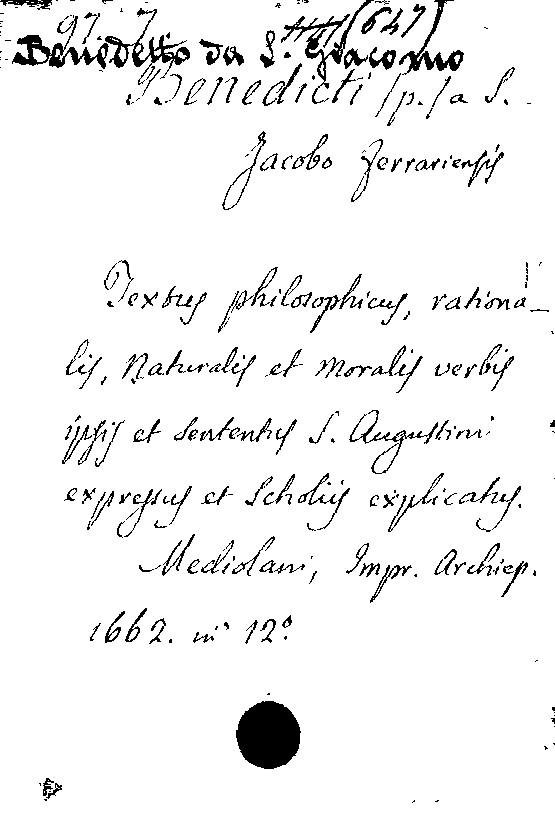 97 7 (647)
Benedetto da S. Giacomo
Benedicti (p.) a S.
Jacobo Ferrariensis
Textus philosophicus, rationa-
lis, Naturalis et Moralis verbis
ipsis et sententiis S. Augustini
expressus et Scholiis explicatus.
Mediolani, Impr. Archiep.
1662. in 12º.